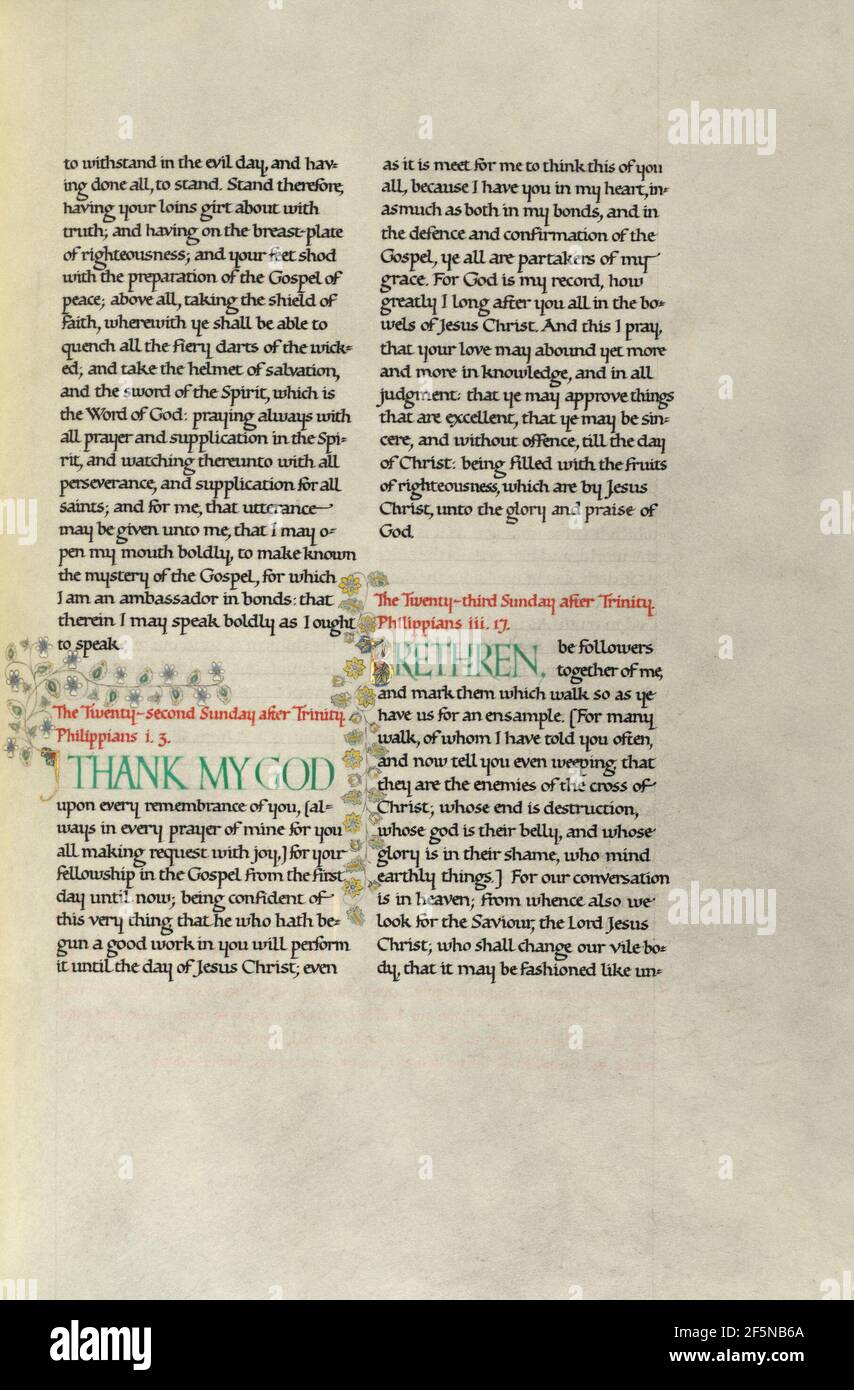 to withstand in the evil day, and hav=
ing done all, to stand. Stand therefore,
having your loins girt about with
truth; and having on the breast-plate
of righteousness; and your feet shod
with the preparation of the Gospel of
peace; above all, taking the shield of
faith, wherewith ye shall be able to
quench all the fiery darts of the wick=
ed; and take the helmet of salvation,
and the sword of the Spirit, which is
the Word of God: praying always with
all prayer and supplication in the Spi=
rit, and watching thereunto with all
perseverance, and supplication for all
saints; and for me, that utterance
may be given unto me, that I may o=
pen my mouth boldly, to make known
the mystery of the Gospel, for which
I am an ambassador in bonds: that
therein I may speak boldly as I ought
to speak.
The Twenty-second Sunday after Trinity.
Philippians i. 3.
I THANK MY GOD
upon every remembrance of you, [al=
ways in every prayer of mine for you
all making request with joy,] for your
fellowship in the Gospel from the first
day until now; being confident of
this very thing that he who hath be=
gun a good work in you will perform
it until the day of Jesus Christ; even
as it is meet for me to think this of you
all, because I have you in my heart, in=
asmuch as both in my bonds, and in
the defence and confirmation of the
Gospel, ye all are partakers of my
grace. For God is my record, how
greatly I long after you all in the bo=
wels of Jesus Christ. And this I pray,
that your love may abound yet more
and more in knowledge, and in all
judgment: that ye may approve things
that are excellent, that ye may be sin=
cere, and without offence, till the day
of Christ: being filled with the fruits
of righteousness, which are by Jesus
Christ, unto the glory and praise of
God.
The Twenty-third Sunday after Trinity.
Philippians iii. 17.
BRETHREN, be followers
together of me,
and mark them which walk so as ye
have us for an ensample. [For many
walk, of whom I have told you often,
and now tell you even weeping that
they are the enemies of the cross of
Christ; whose end is destruction,
whose god is their belly, and whose
glory is in their shame, who mind
earthly things.] For our conversation
is in heaven; from whence also we
look for the Saviour, the Lord Jesus
Christ; who shall change our vile bo=
dy, that it may be fashioned like un=
alamy
alamy
Image ID: 2F5NB6A
www.alamy.com